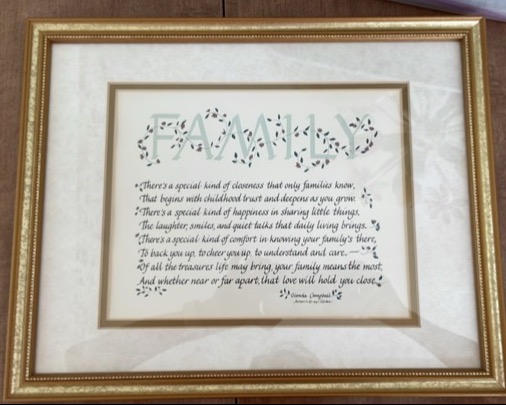 FAMILY
There's a special kind of closeness that only families know,
That begins with childhood trust and deepens as you grow.
There's a special kind of happiness in sharing little things,
The laughter, smiles, and quiet talks that daily living brings.
There's a special kind of comfort in knowing your family's there,
To back you up, to cheer you up, to understand and care. —
Of all the treasures life may bring, your family means the most,
And whether near or far apart, that love will hold you close.
Glenda Campbell